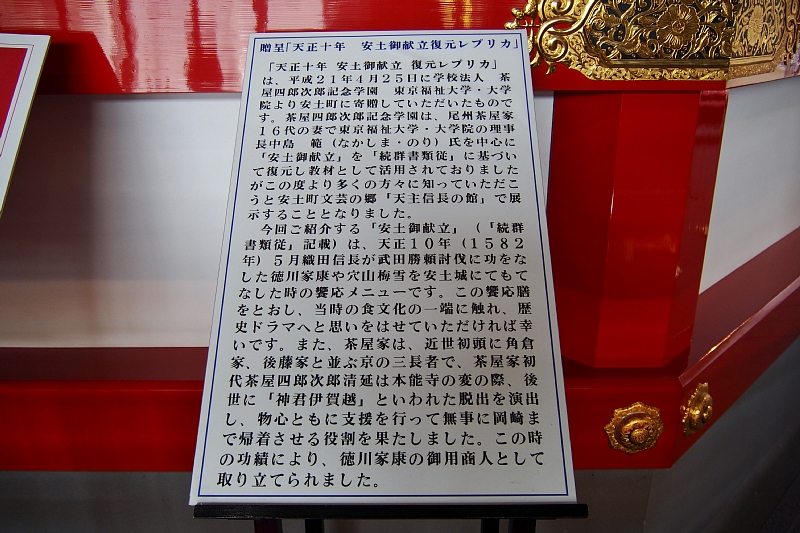 贈呈「天正十年　安土御献立復元レプリカ」
「天正十年 安土御献立 復元レプリカ」
は、平成21年4月25日に学校法人　茶
屋四郎次郎記念学園　東京福祉大学・大学
院より安土町に寄贈していただいたもので
す。茶屋四郎次郎記念学園は、尾州茶屋家
16代の妻で東京福祉大学・大学院の理事
長中島　範（なかしま・のり）氏を中心に
「安土御献立」を「続群書類従」に基づい
て復元し教材として活用されておりました
がこの度より多くの方々に知っていただこ
うと安土町文芸の郷「天主信長の館」で展
示することとなりました。
今回ご紹介する「安土御献立」（「続群
書類従」記載）は、天正10年（1582
年）5月織田信長が武田勝頼討伐に功をな
した徳川家康や穴山梅雪を安土城にてもて
なした時の饗応メニューです。この饗応膳
をとおし、当時の食文化の一端に触れ、歴
史ドラマへと思いをはせていただければ幸
いです。また、茶屋家は、近世初頭に角倉
家、後藤家と並ぶ京の三長者で、茶屋家初
代茶屋四郎次郎清延は本能寺の変の際、後
世に「神君伊賀越」といわれた脱出を演出
し、物心ともに支援を行って無事に岡崎ま
で帰着させる役割を果たしました。この時
の功績により、徳川家康の御用商人として
取り立てられました。